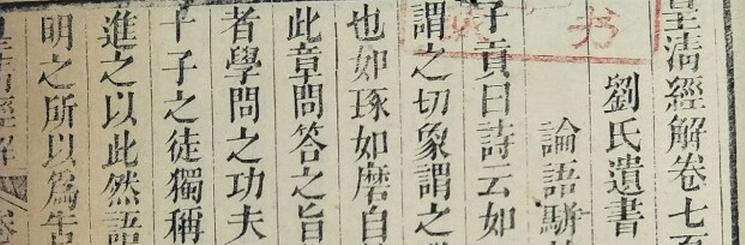 皇清經解卷七百
劉氏遺書
論語駢枝
子貢曰詩云如
书
謂之切象謂之
也如琢如磨自
此章問答之旨
者學問之功夫
十子之徒獨稱
進之以此然語
明之所以爲吿
皇清經解